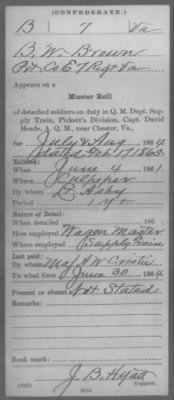 (CONFEDERATE.)
B 7 Va
B. W. Brown
Pvt Co E 7 Regt Va
Appears on a
Muster Roll
of detached soldiers on duty in Q. M. Dept. Sup-
ply Train, Pickett's Division, Capt. David
Meade, A. Q. M., near Chester, Va.,
for July & Aug, 1864
dated Feb 17 1865
Enlisted:
When June 4, 1861.
Where Culpeper
By whom
Period 1 yr
Nature of Detail:
When detailed , 186 .
How employed Wagon Master
Where employed Supply Train
Last paid:
By whom Maj. W
To what time June 30, 1864
Present or absent Not Stated
Remarks:
Book mark:
J. B. Hyatt
Copyist.